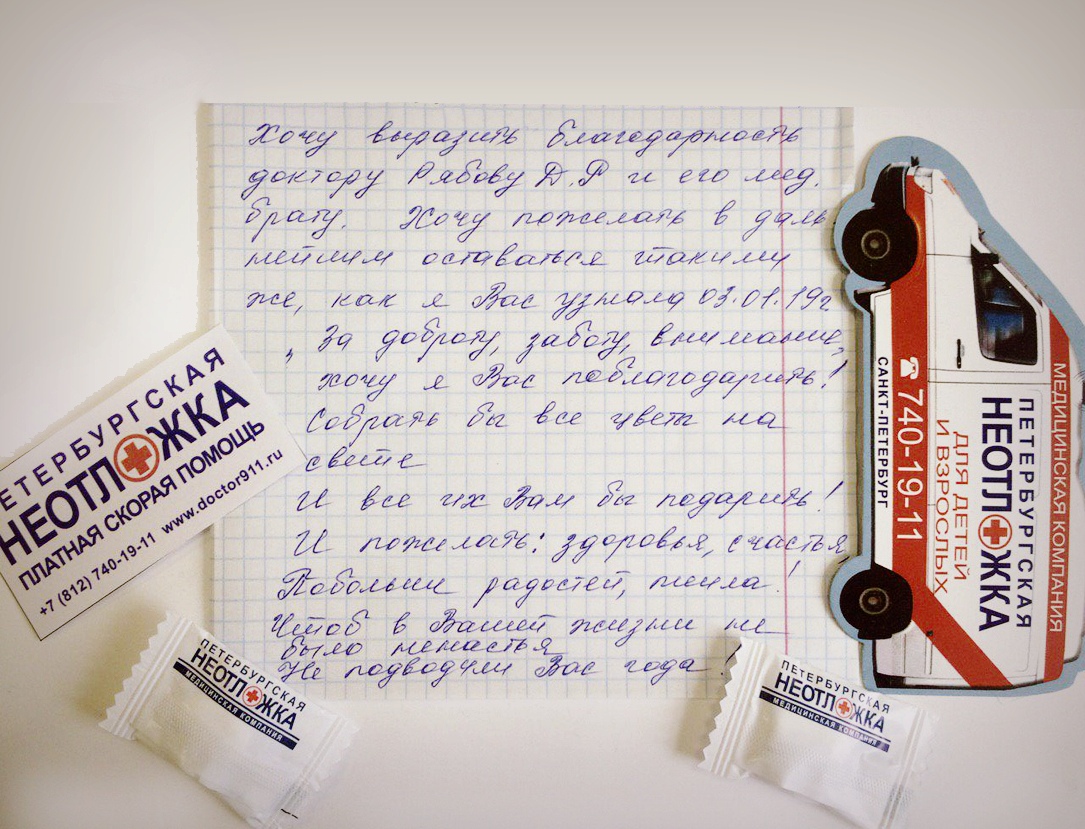 Хочу выразить благодарность
доктору Рябову Д.Р и его мед.
брату. Хочу пожелать в даль
нейшем оставаться такими
же, как я Вас узнала 03.01.19г.
„ За доброту, заботу, внимание,
хочу я Вас поблагодарить!
Собрать бы все цветы на
свете
И все их Вам бы подарить!
И пожелать: здоровья, счастья
Побольше радостей, тепла!
Чтоб в Вашей жизни не
было ненастья
Не подводули Вас года!
ЕТЕРБУРГСКАЯ
НЕОТЛОЖКА
ПЛАТНАЯ СКОРАЯ ПОМОЩЬ
+7 (812) 740-19-11 www.doctor911.ru
МЕДИЦИНСКАЯ КОМПАНИЯ
ПЕТЕРБУРГСКАЯ
НЕОТЛОЖКА
ДЛЯ ДЕТЕЙ
И ВЗРОСЛЫХ
740-19-11
САНКТ-ПЕТЕРБУРГ
ПЕТЕРБУРГСКАЯ
НЕОТЛОЖКА
МЕДИЦИНСКАЯ КОМПАНИЯ
ПЕТЕРБУРГСКАЯ
НЕОТЛОЖКА
МЕДИЦИНСКАЯ КОМПАНИЯ